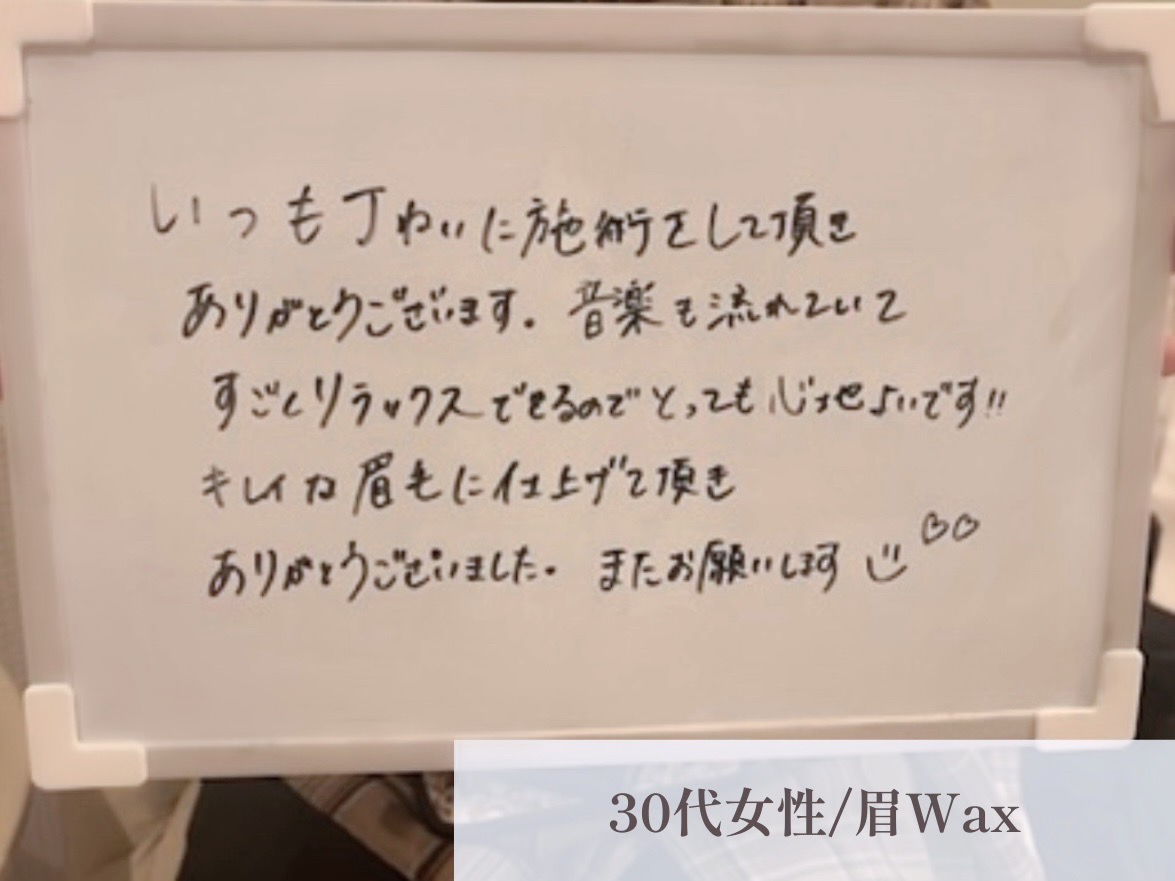 いつも丁ねいに施術をして頂き
ありがとうございます。音楽も流れていて
すごくリラックスできるのでとっても心ずせよいです!!
キレイな眉毛に仕上げて頂き
ありがとうございました。またお願いします
30代女性/眉Wax